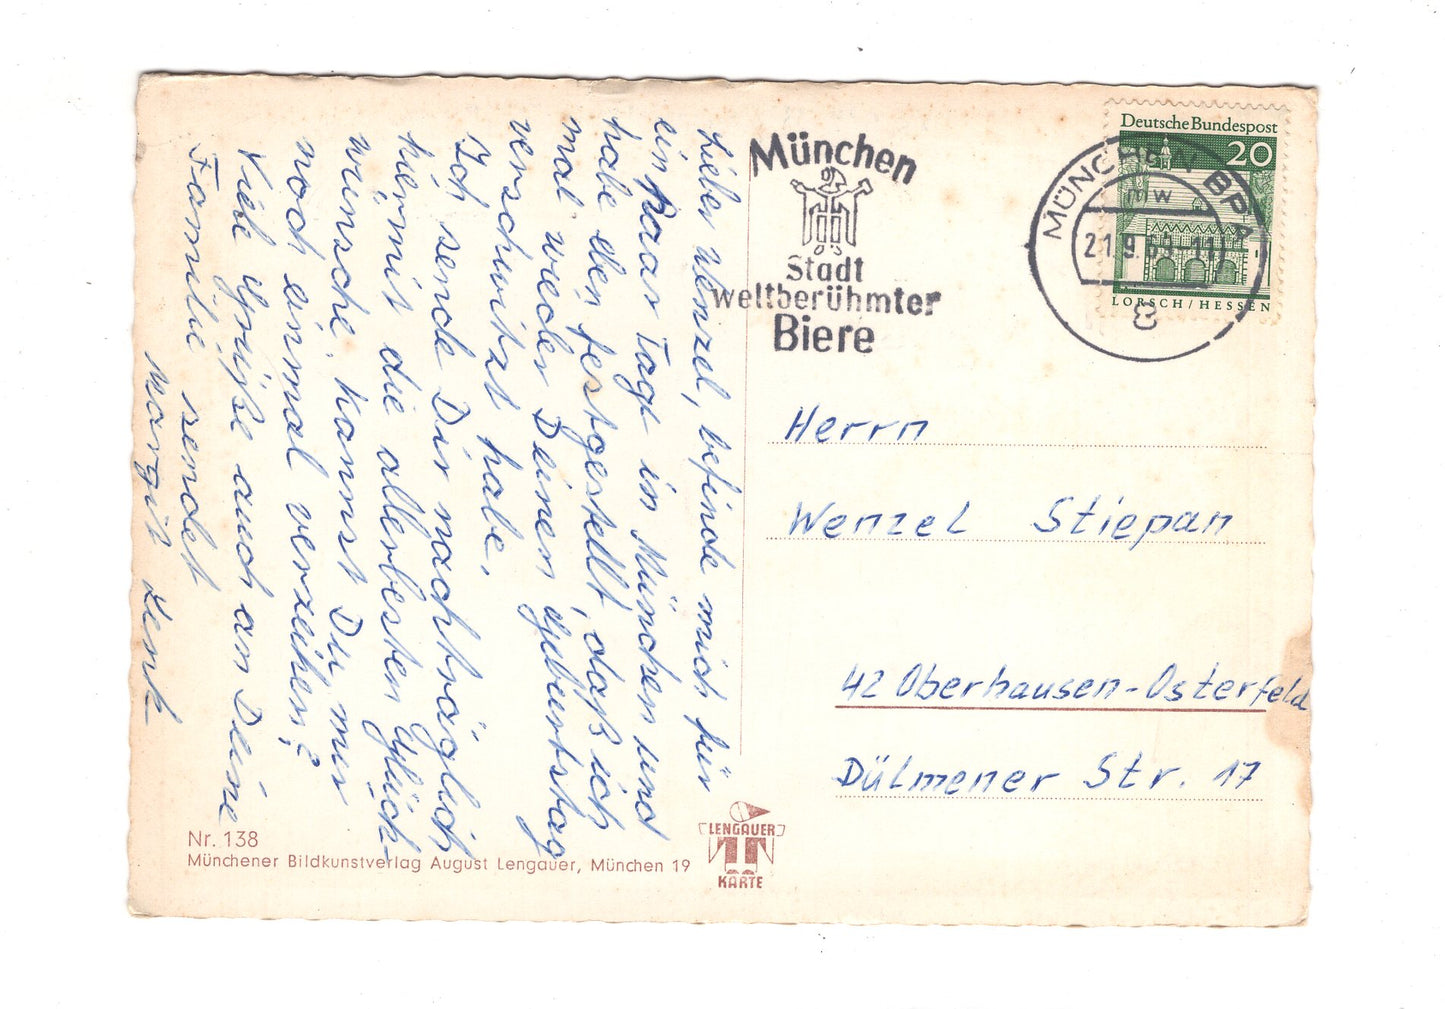 Lieber Wenzel, befinde mich für
ein paar Tage in München und
habe eben festgestellt, daß ich
mal wieder Deinen Geburtstag
verschwitzt habe.
Ich sende Dir nachträglich
hiermit die allerbesten Glück-
wünsche. Kannst Du mir
noch einmal verzeihen?
Viele Grüße auch an Deine
Familie sendet
Margit Lenk
München
Stadt
weltberühmter
Biere
Deutsche Bundespost
20
LORSCH / HESSEN
MÜNCHEN BPA
mw
21.9.69-11
8
Herrn
Wenzel Stiepan
42 Oberhausen-Osterfeld
Dülmener Str. 17
Nr. 138
Münchener Bildkunstverlag August Lengauer, München 19
LENGAUER
KARTE